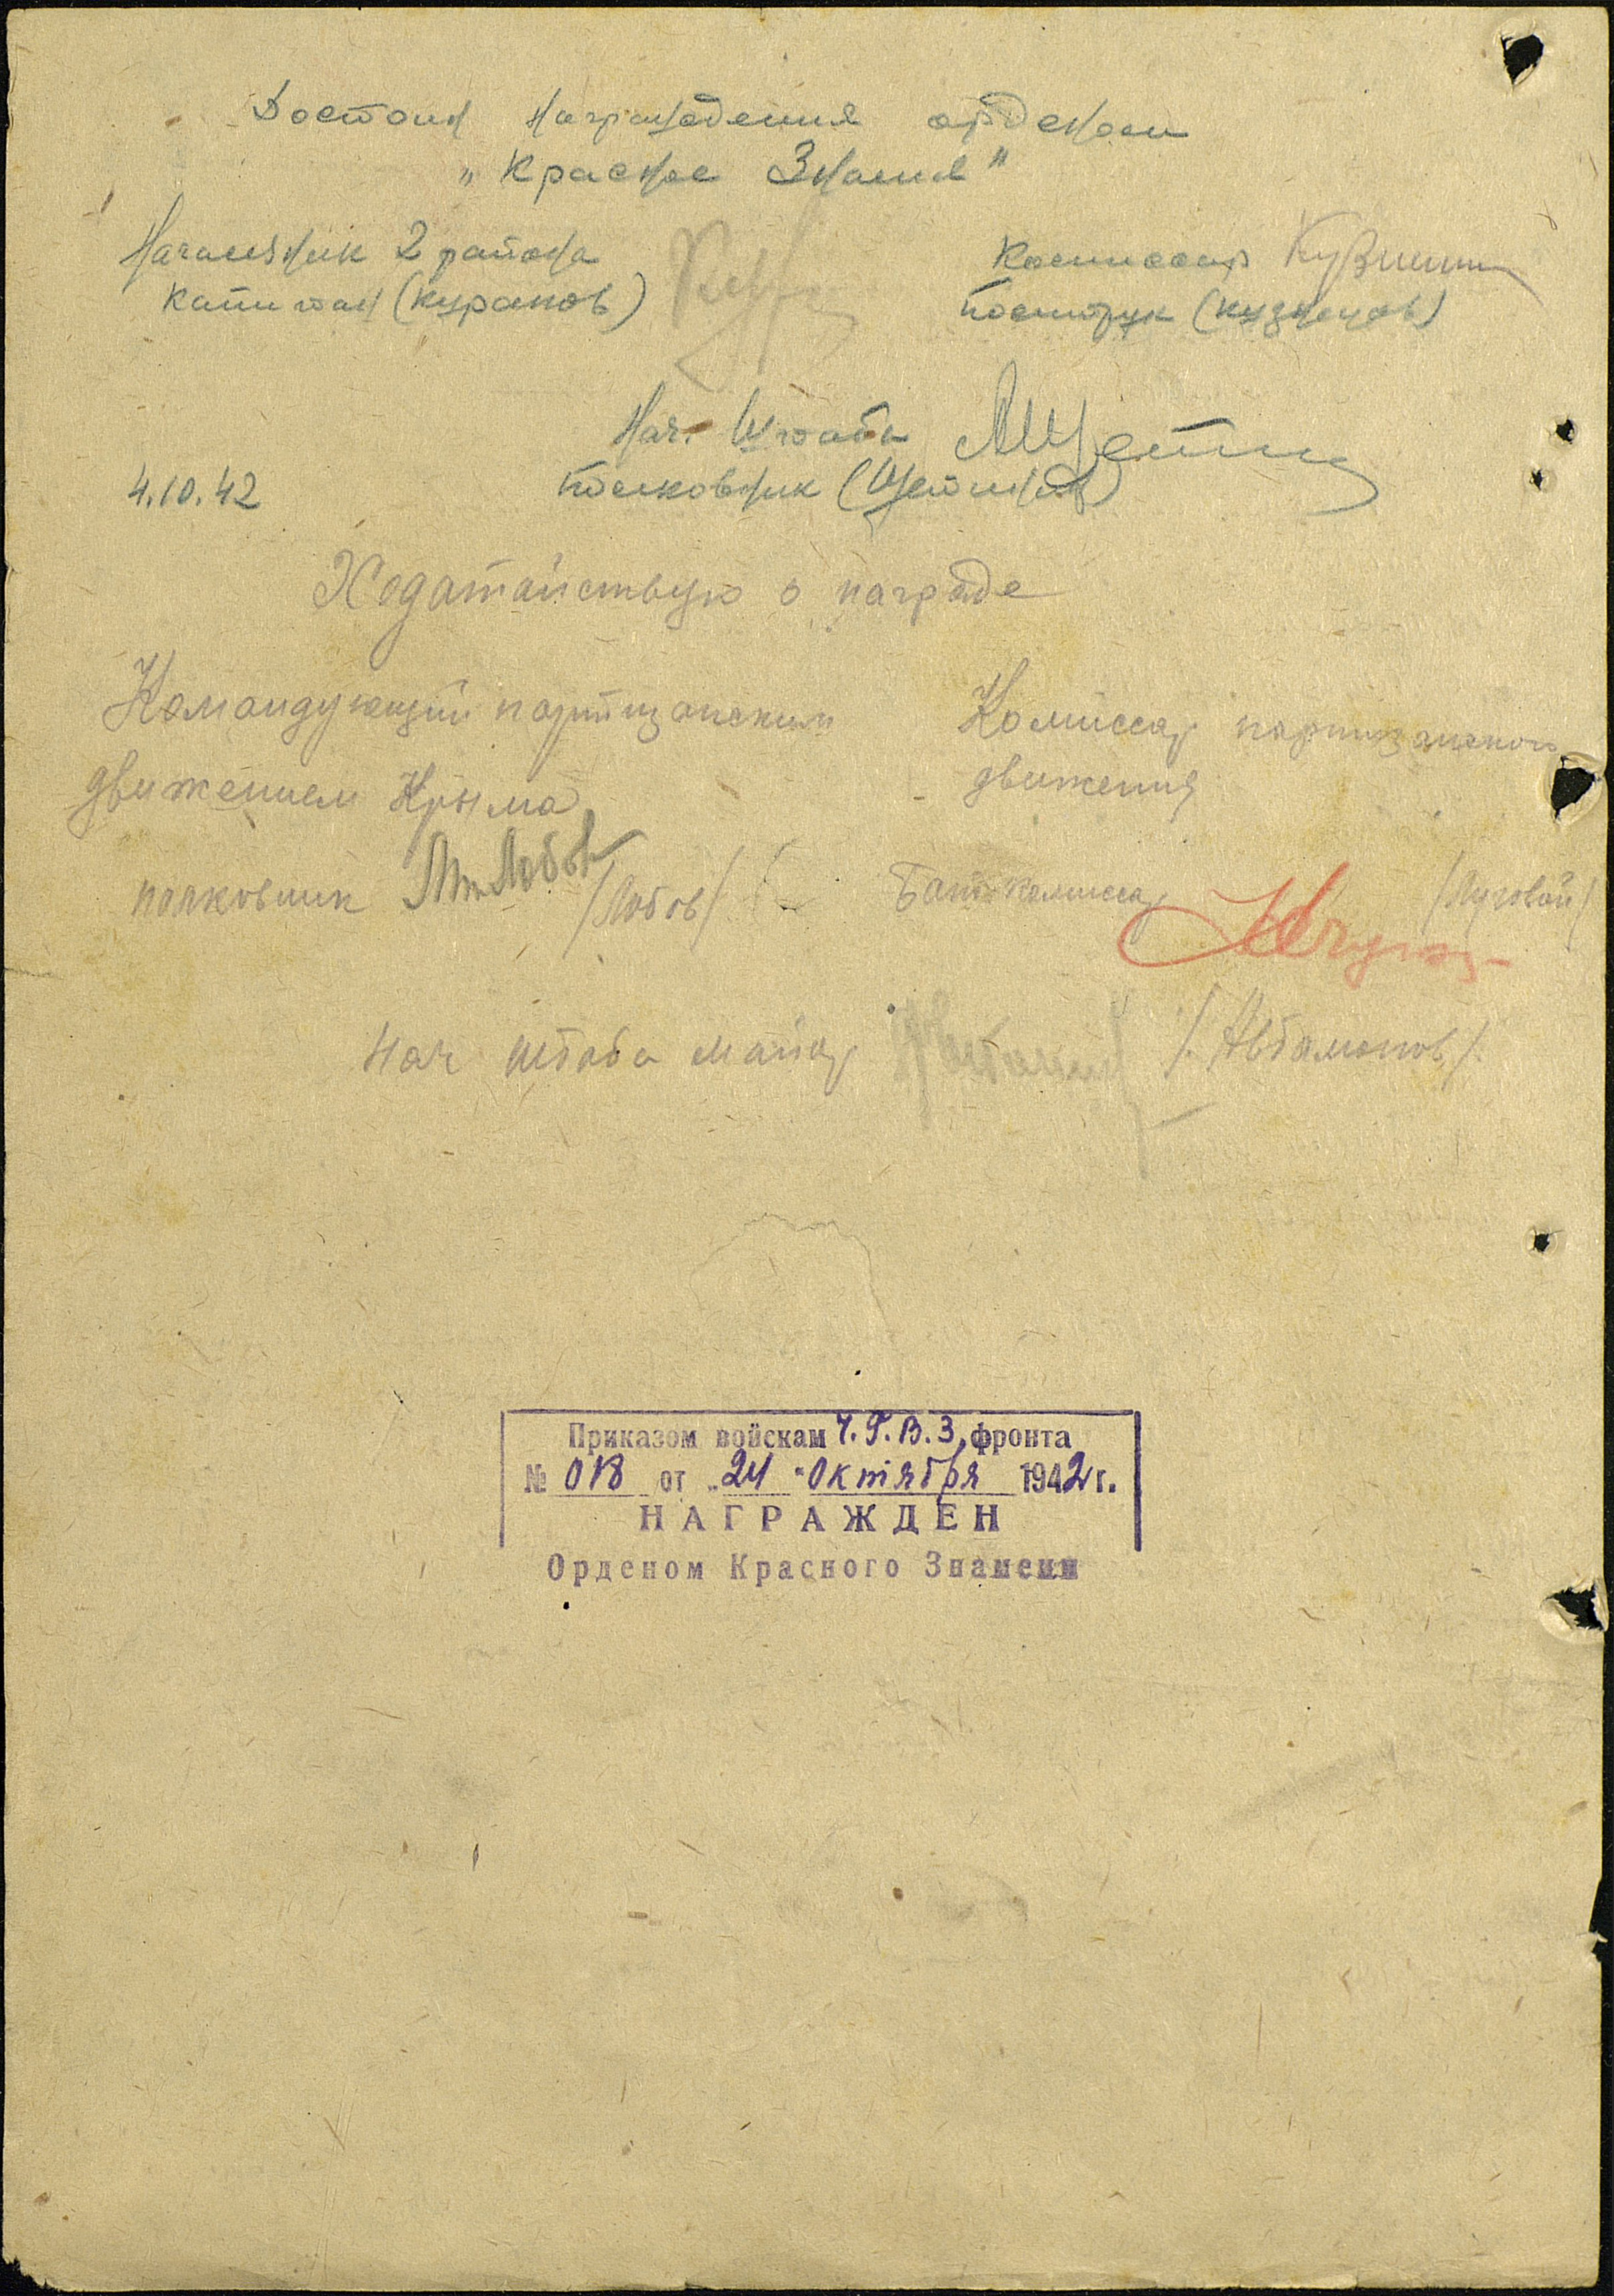 Достоин награждения орденом
„Красное Знамя"
Начальник 2 района
капитан (Кураков)
Комиссар
Политрук (Кузнецов)
Нач. Штаба
Полковник (Щетинин)
4.10.42
Ходатайствую о награде
Командующий партизанским
движением Крыма
полковник МЛобов /Лобов/
Комиссар партизанского
движения
Бат. комиссар /Луговой/
Нач штаба майор /Автамонов/
Приказом войскам Ч.Г.В.З. фронта
№ 018 от „24" Октября 1942 г.
НАГРАЖДЕН
Орденом Красного Знамени